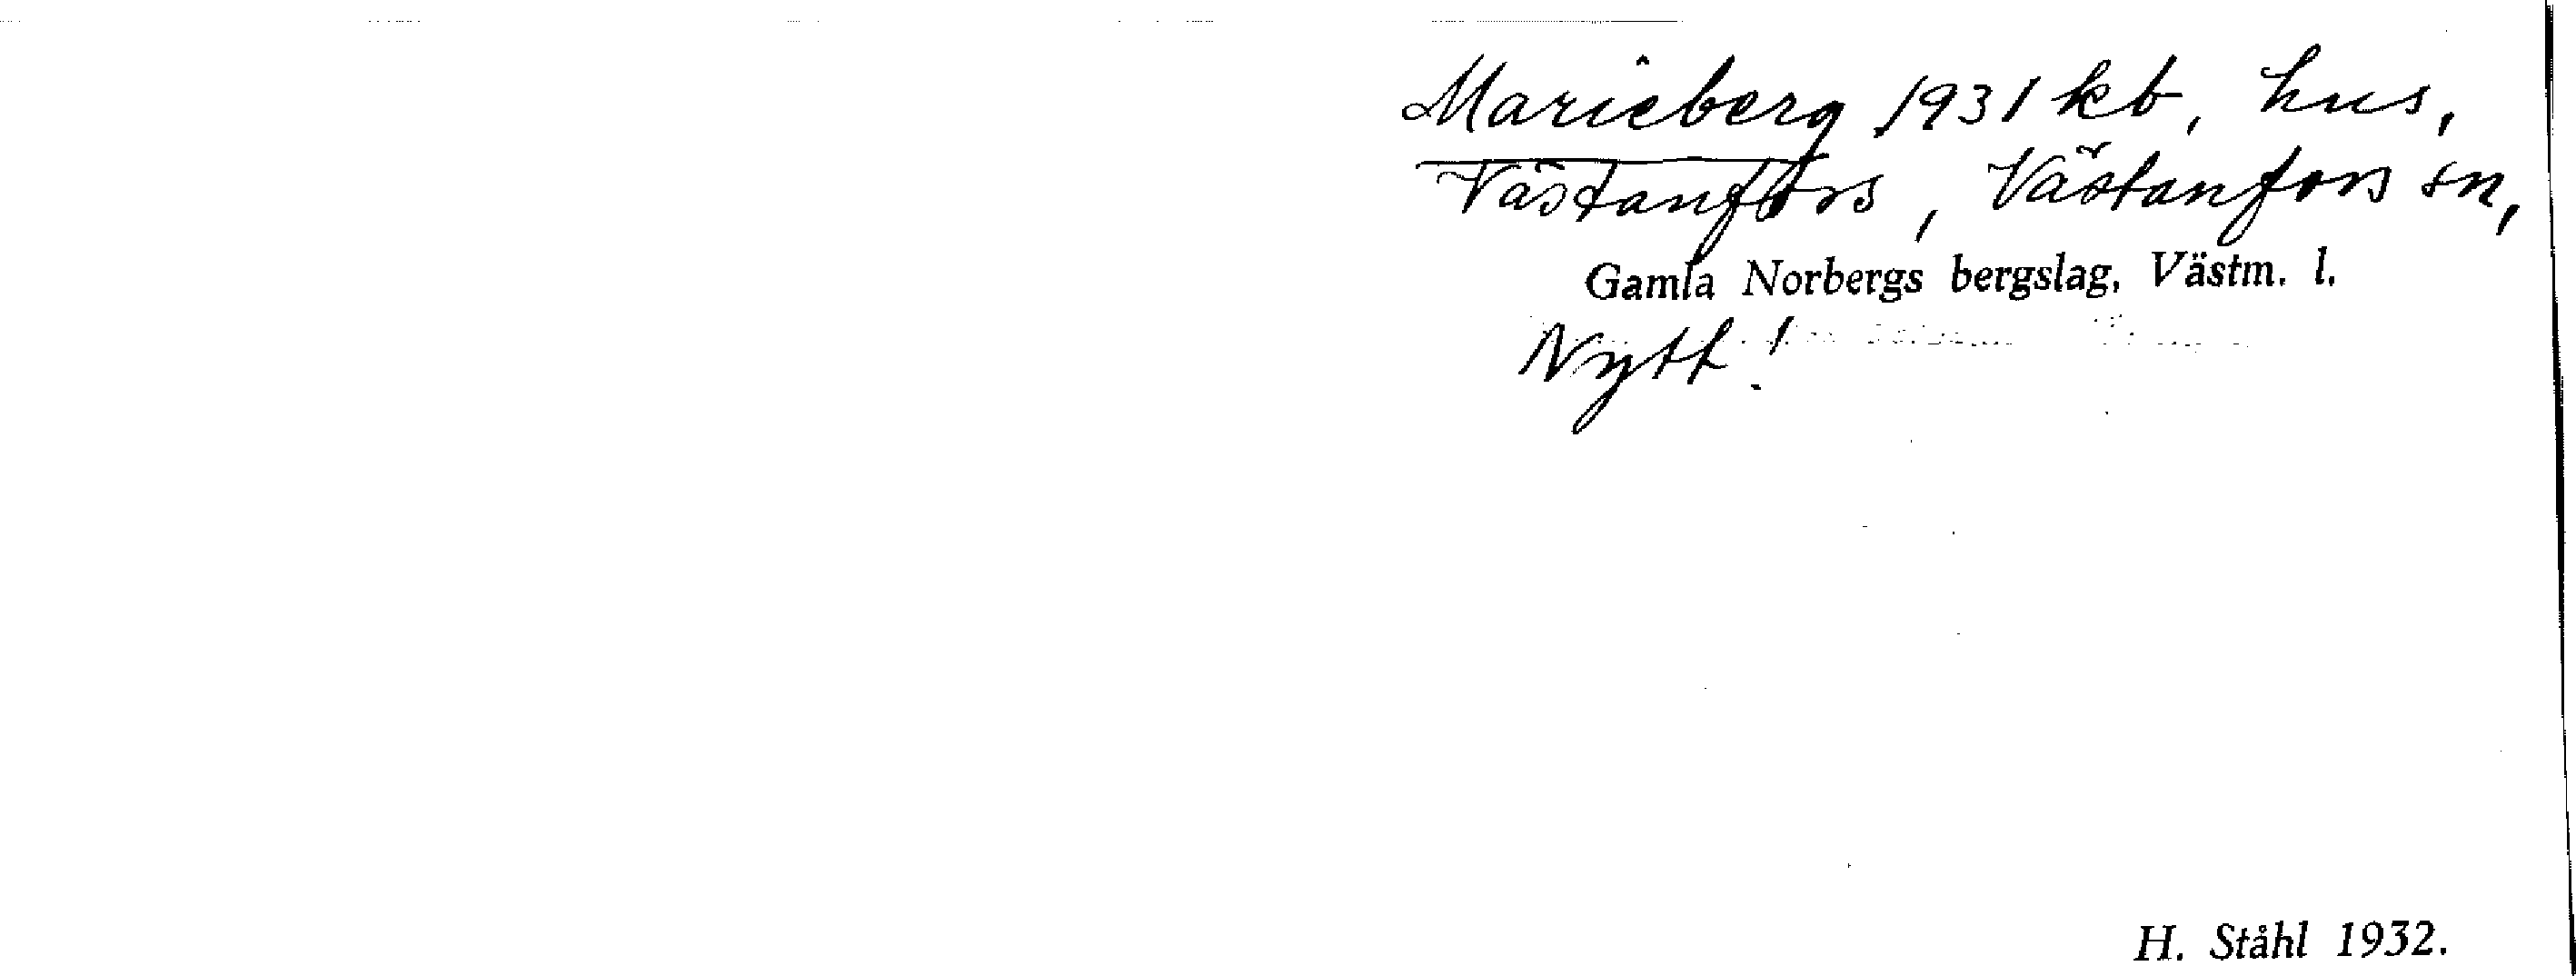 Marieberg 1931 kb, hus,
Västanfors, Västanfors sn,
Gamla Norbergs bergslag, Västm. l.
Nytt!
H. Ståhl 1932.